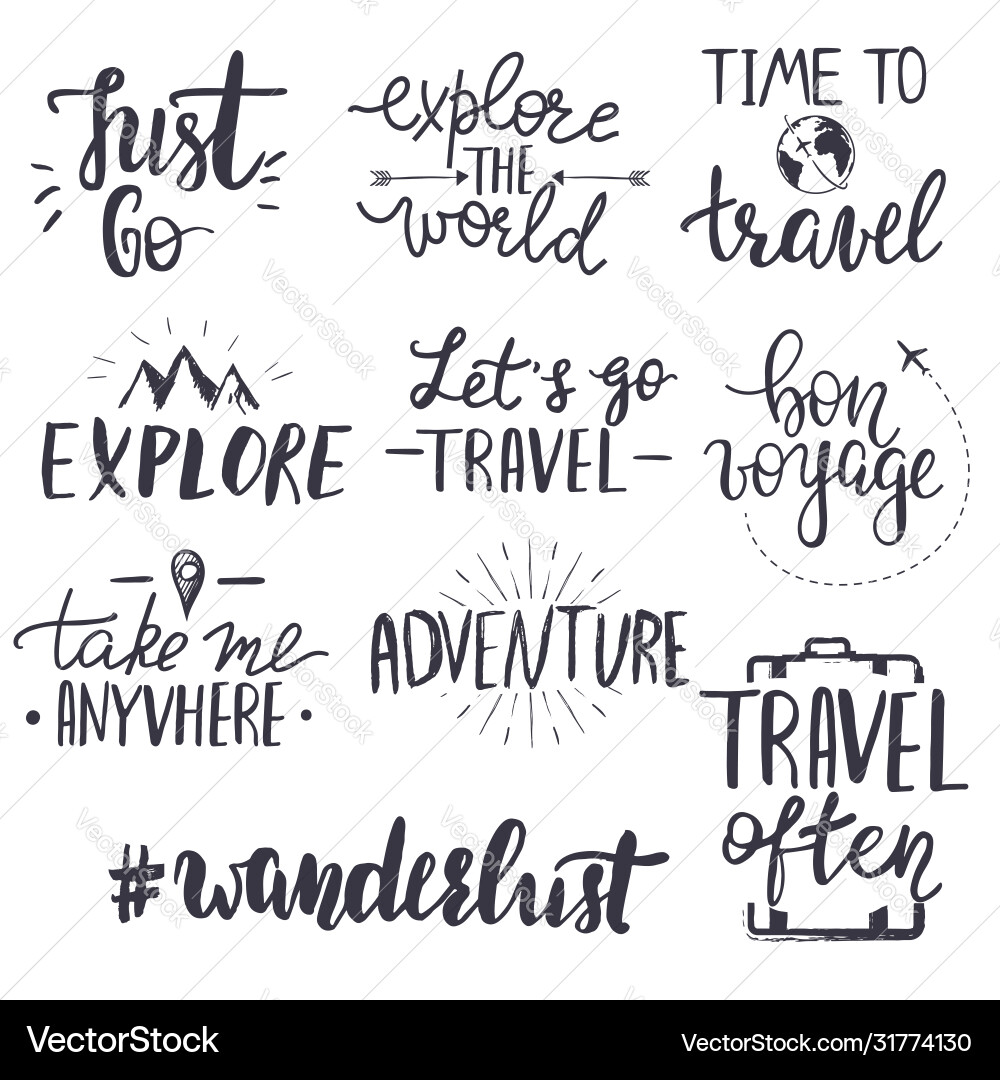 Just
Go
explore
THE
world
TIME TO
travel
EXPLORE
Let's go
TRAVEL
bon
voyage
take me
ANYVHERE
ADVENTURE
TRAVEL
often
#wanderlust
VectorStock
VectorStock.com/31774130